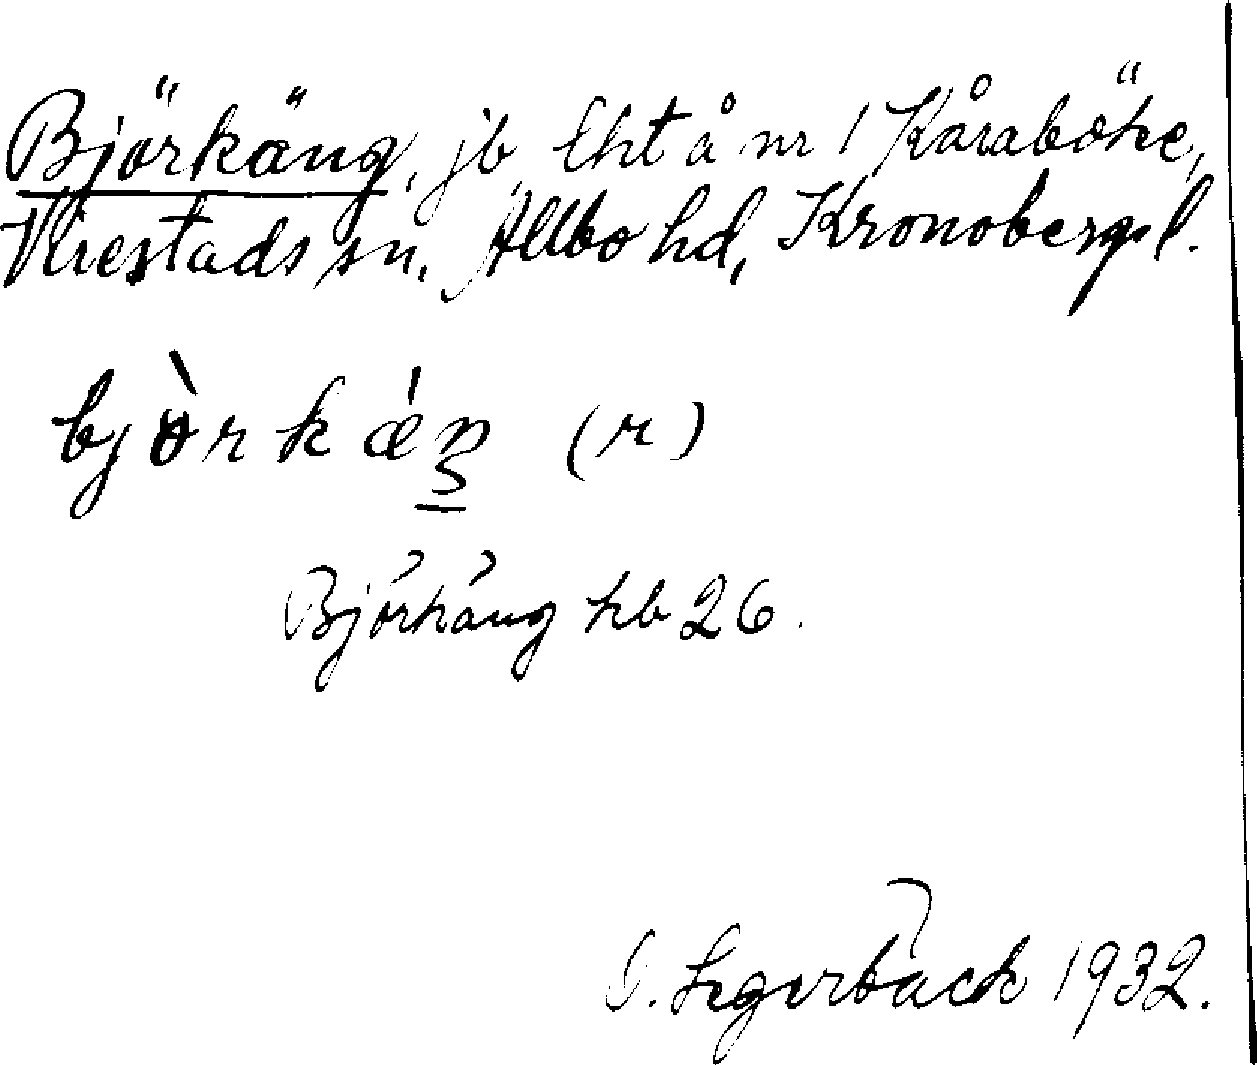 Björkäng, jb lht å nr 1 Kåraböke,
Virestads sn, Allbo hd, Kronobergs l.
bjòrkǽŋ (r)
Björkäng hb 26.
O. Segerbäck 1932.